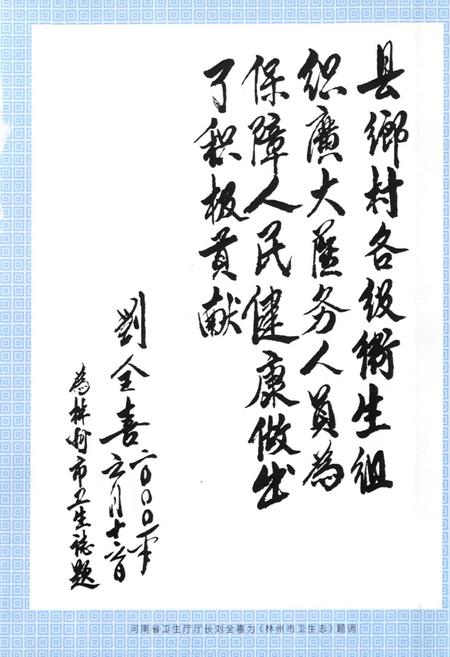 县鄉村各级衛生组
织廣大醫务人員為
保障人民健康做出
了积极贡献
劉全喜
二〇〇〇年
六月十六日
為林州市卫生誌題
河南省卫生厅厅长刘全喜为《林州市卫生志》题词